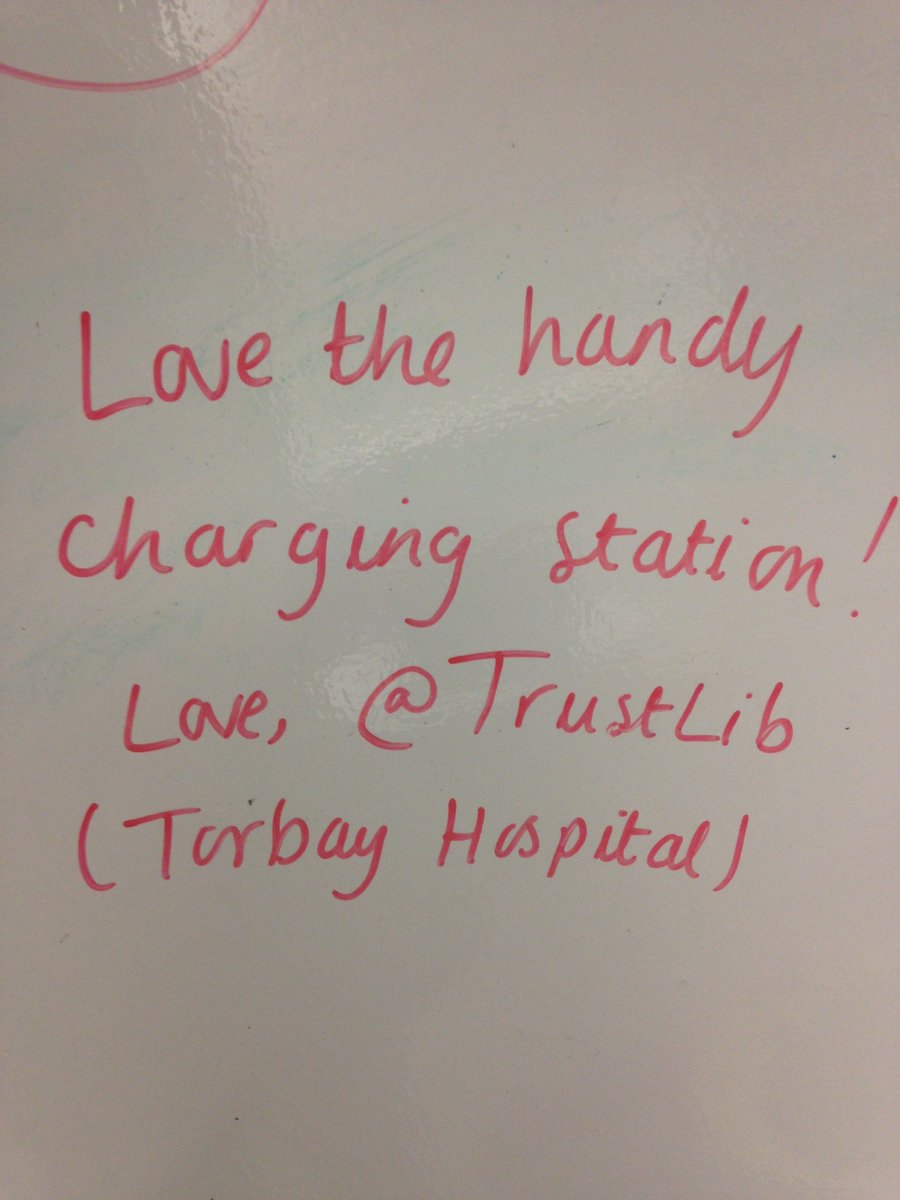 Love the handy
charging station!
Love, @TrustLib
(Torbay Hospital)